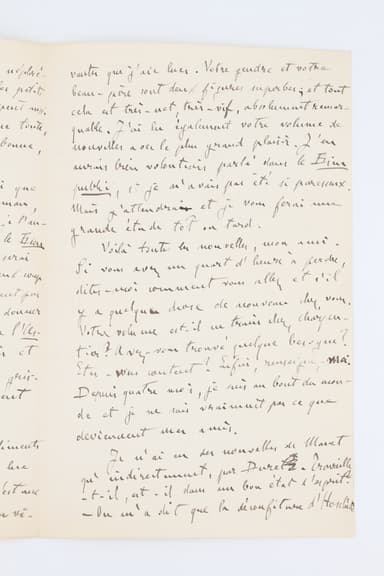 vantes que j'aie lues. Votre gendre et votre
beau-père sont deux figures superbes; et tout
cela est très-net très-vif, absolument remar-
quable. J'ai lu également votre volume de
nouvelles avec le plus grand plaisir. J'en
aurais bien volontiers parlé dans le Bien
public, si je n'avais pas été si paresseux.
Mais j'attendrai et je vous ferai une
grande étude tôt ou tard.
Voilà toutes les nouvelles, mon ami.
Si vous avez un quart d'heure à perdre,
dites-moi comment vous allez et s'il
y a quelque chose de nouveau chez vous.
Votre volume est-il en train chez Charpen-
tier? Avez-vous trouvé quelque besogne?
Etes-vous content? Enfin, renseignez-moi.
Depuis quatre mois, je suis au bout du mon-
de et je ne sais vraiment pas ce que
deviennent mes amis.
Je n'ai eu des nouvelles de Manet
qu'indirectement, par Duret. Travaille
-t-il, est-il dans un bon état d'esprit?
- On m'a dit que la déconfiture d'Hoschedé